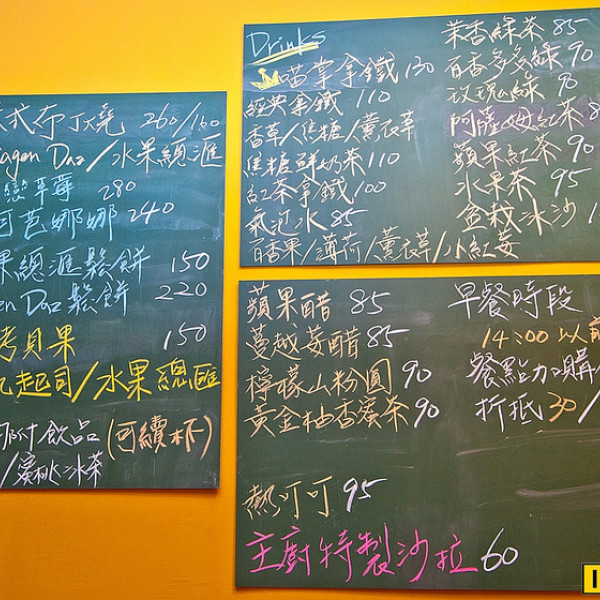 式布丁燒 260/160
agen Daz/水果總滙
戀草莓 280
可芭娜娜 240
果總滙鬆餅 150
en Daz 鬆餅 220
烤貝果 150
起司/水果總匯
附飲品(可續杯)
/蜜桃冰茶
Drinks
喵掌拿鐵 130
經典拿鐵 110
香草/焦糖/薰衣草
焦糖鮮奶茶 110
紅茶拿鐵 100
氣泡水 85
百香果/薄荷/薰衣草/小紅莓
茉香綠茶 85
百香多多綠 90
玫瑰綠 90
阿薩姆紅茶 8
蘋果紅茶 90
水果茶 95
盆栽冰沙 1
蘋果醋 85
蔓越莓醋 85
檸檬山粉圓 90
黃金柚香蜜茶 90
熱叮叮 95
主廚特製沙拉 60
早餐時段
14:00以前
餐點加購
折抵30/